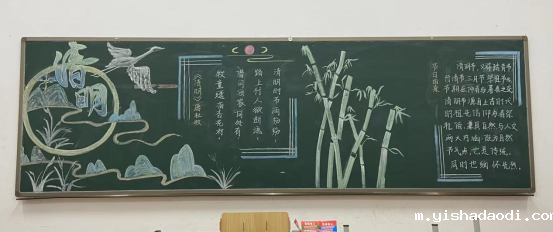 清明
清明时节雨纷纷，
路上行人欲断魂。
借问酒家何处有
牧童遥指杏花村
《清明》唐杜牧
节日由来
清明节，又称踏青节
行清节、三月节、祭祖节等
节期在仲春与暮春之交
清明节源自上古时代
祖先信仰与春祭
礼俗，兼具自然与人文
两大内涵，既为自然
节气点，也是传统
m.yishadaodi.com